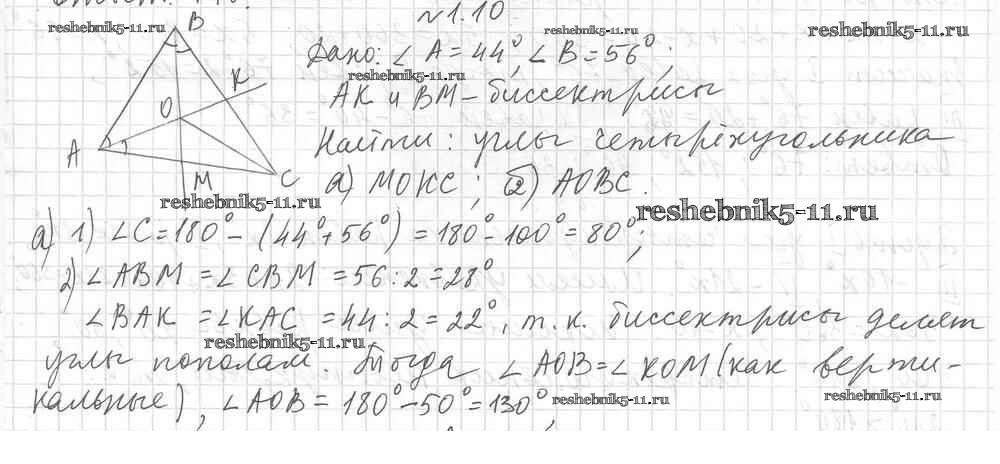 №1.10.
reshebnik5-11.ru
reshebnik5-11.ru
reshebnik5-11.ru
B
Дано: ∠A = 44°, ∠B = 56°;
reshebnik5-11.ru
K
AK и BM – биссектрисы
O
Найти: углы четырёхугольника
A
M
C
а) MOKC; б) AOBC.
reshebnik5-11.ru
reshebnik5-11.ru
а) 1) ∠C = 180° – (44° + 56°) = 180° – 100° = 80°;
2) ∠ABM = ∠CBM = 56 : 2 = 28°
∠BAK = ∠KAC = 44 : 2 = 22°, т.к. биссектрисы делят
reshebnik5-11.ru
углы пополам. Тогда ∠AOB = ∠KOM (как верти-
кальные), ∠AOB = 180° – 50° = 130°,
reshebnik5-11.ru
reshebnik5-11.ru